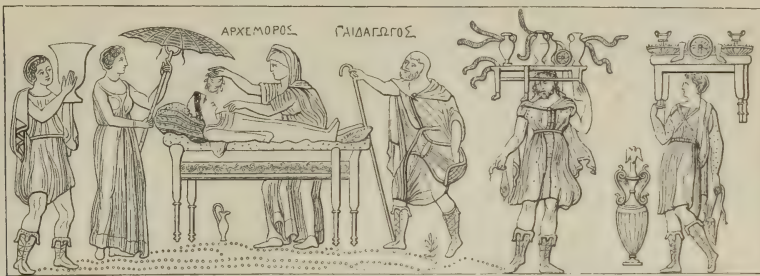 ΑΡΧΕΜΟΡΟΣ ΠΑΙΔΑΓΩΓΟΣ